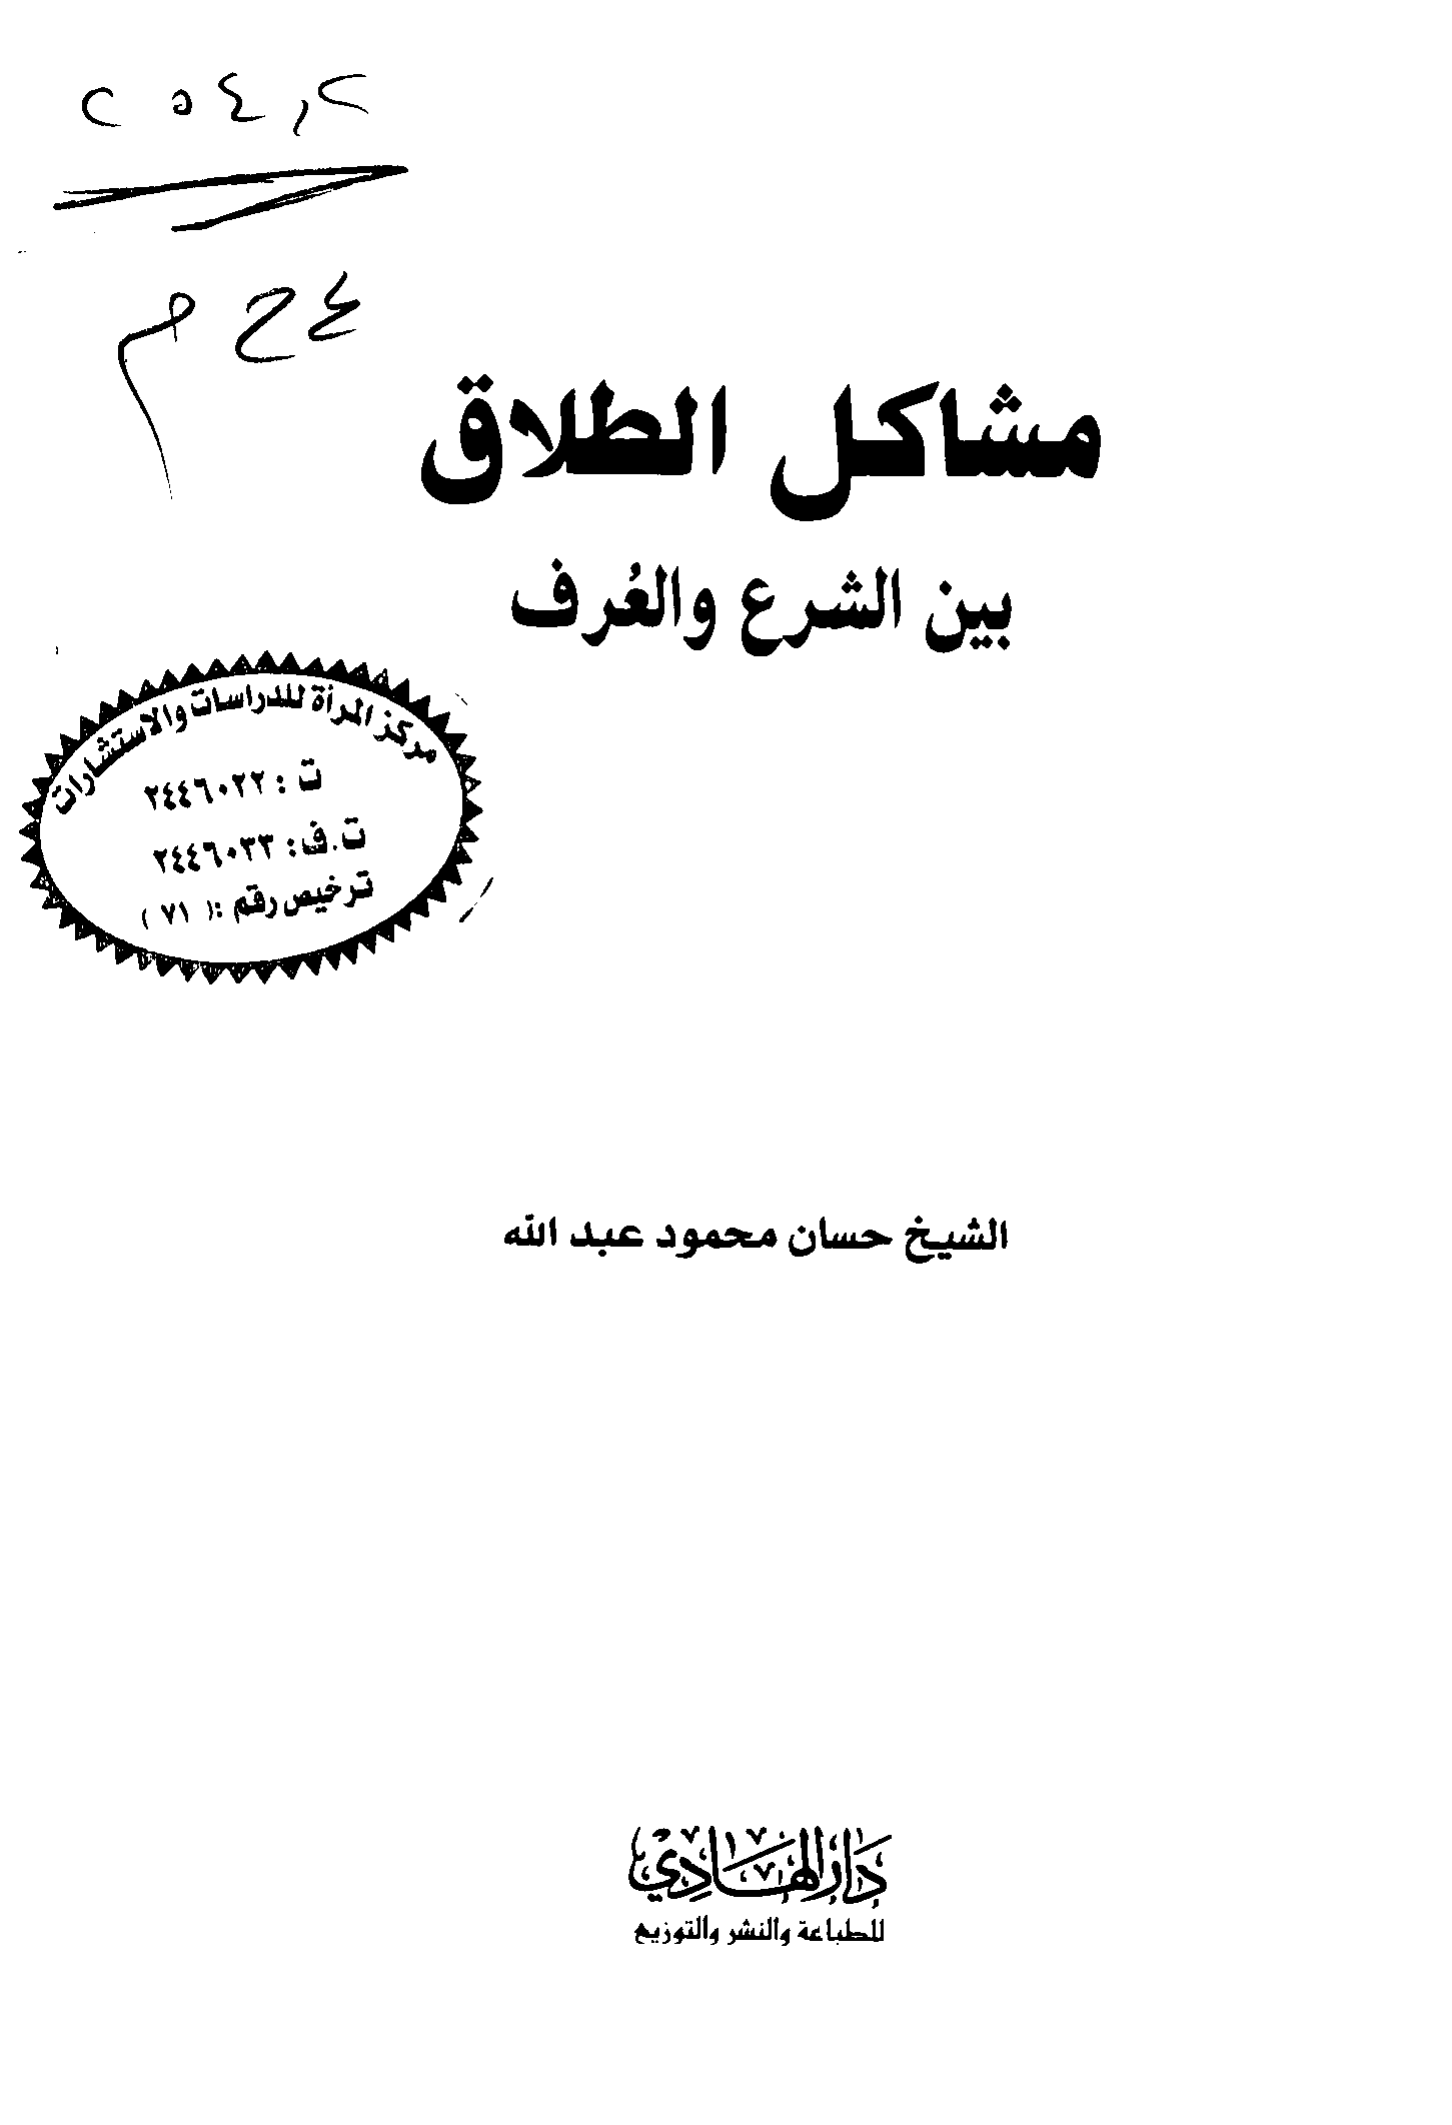 ٢٥٤,٢
م ح ع
مشاكل الطلاق
بين الشرع والعُرف
مركز المرأة للدراسات والاستشارات
ت : ٢٤٤٦٠٢٢
ت.ف: ٢٤٤٦٠٣٣
ترخيص رقم :( ٧١ )
الشيخ حسان محمود عبد الله
دار الهادي
للطباعة والنشر والتوزيع